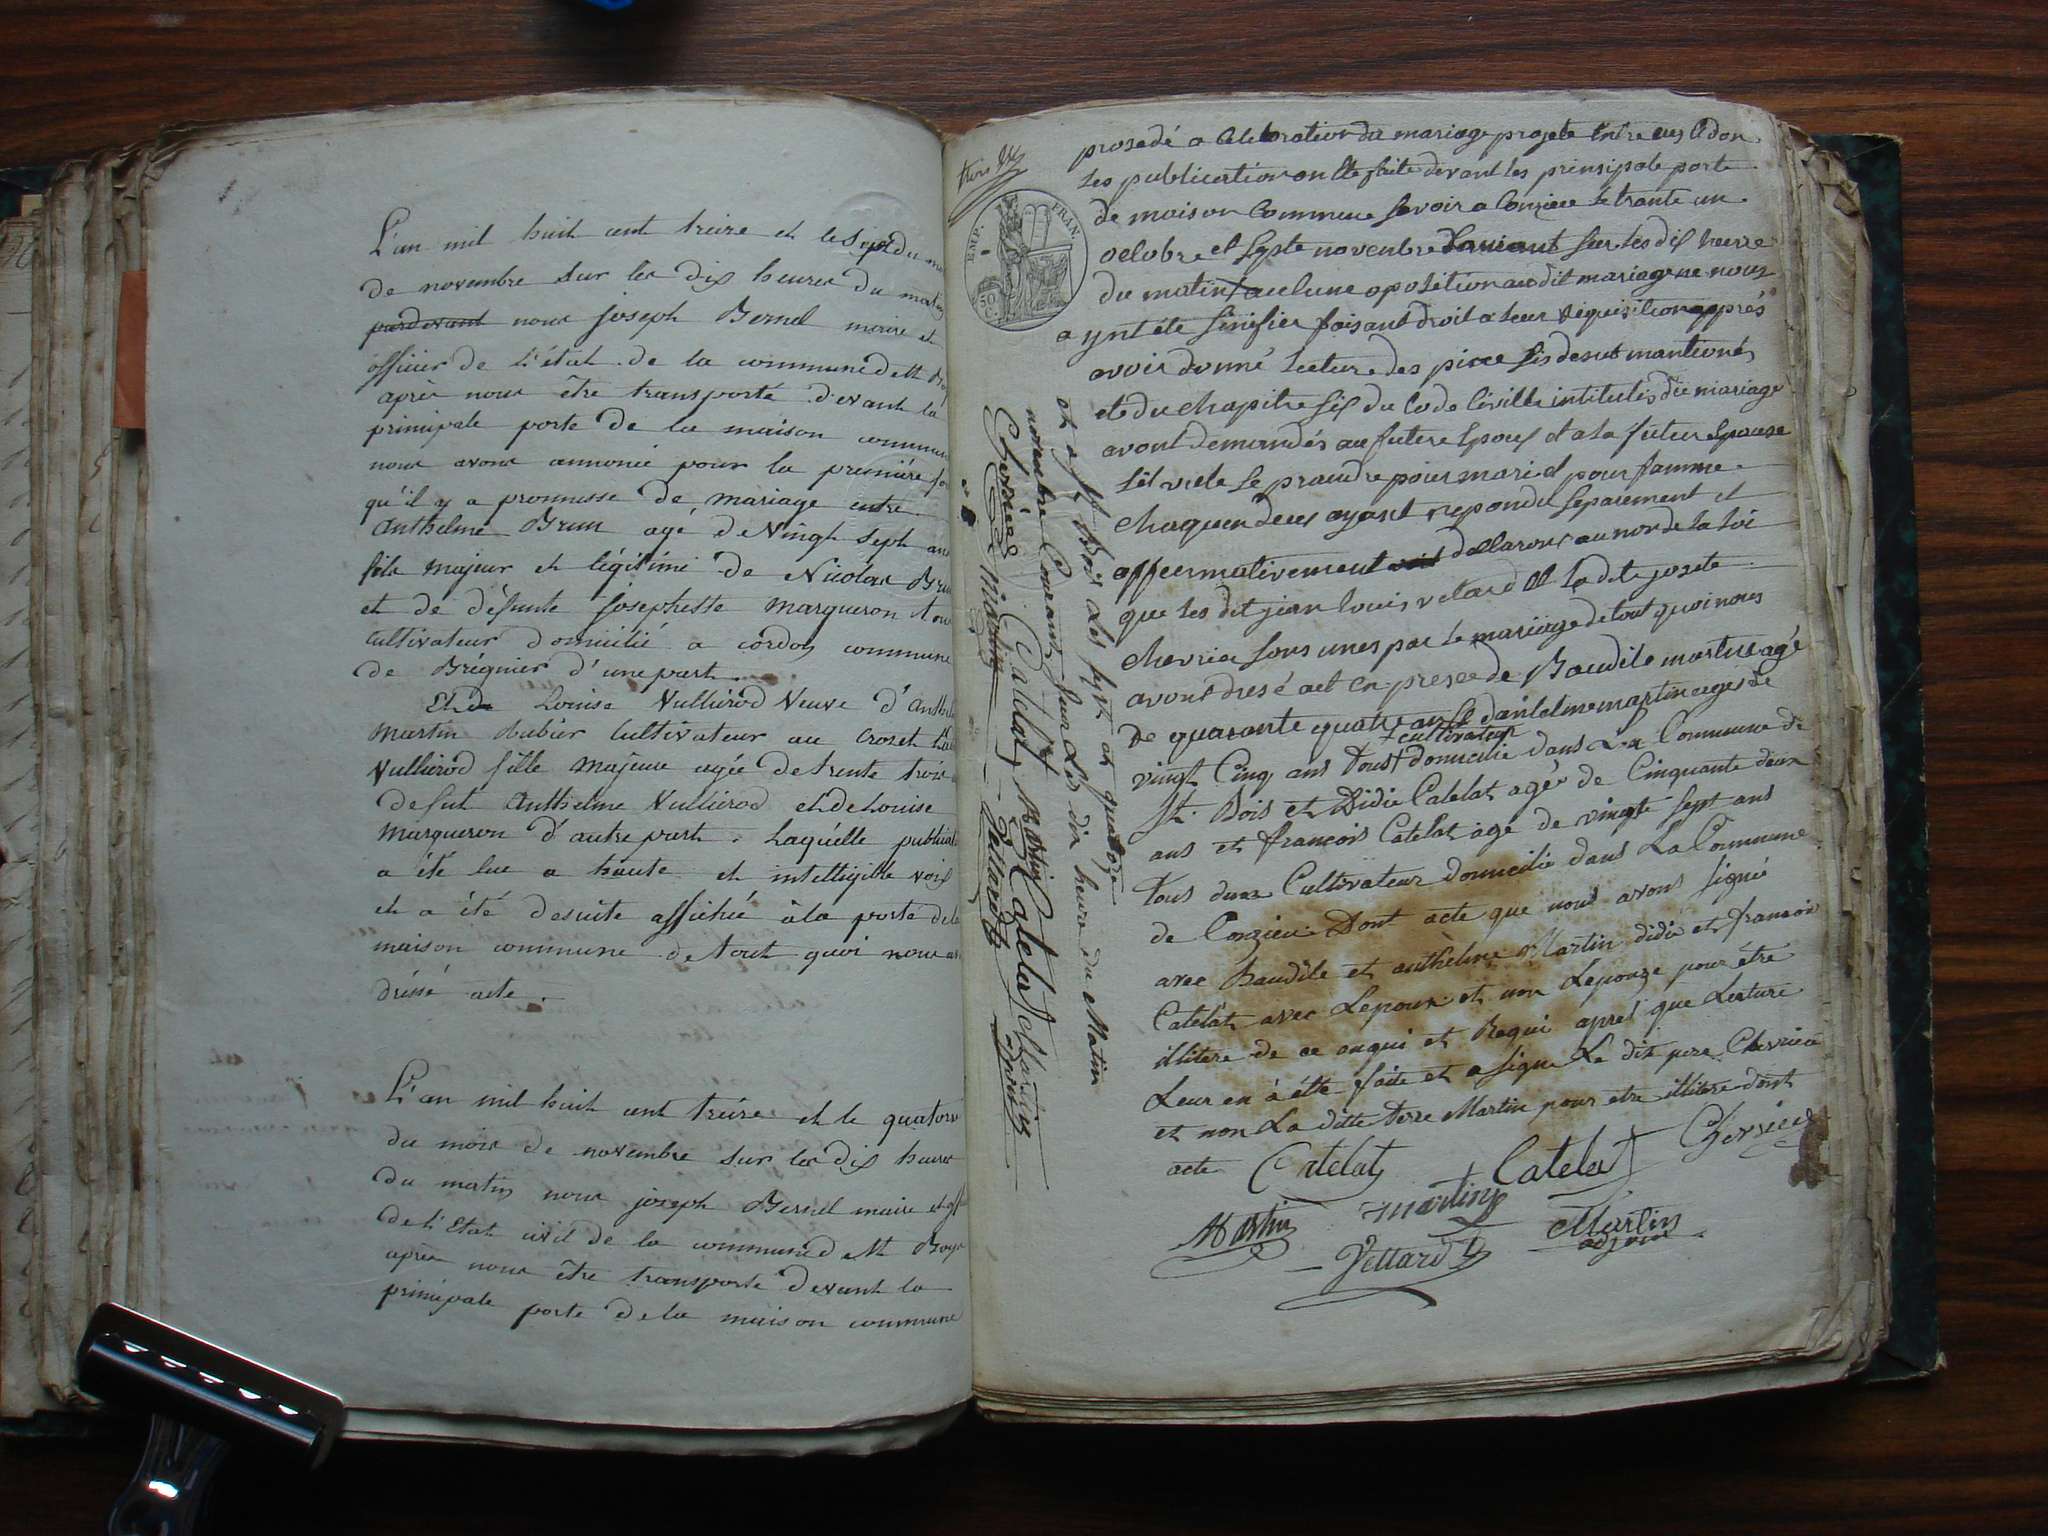 L'an mil huit cent treize et le sept du
de novembre sur les dix heures du matin
pardevant nous joseph Bernel maire et
officier de l'état de la commune de St
après nous être transporté devant la
principale porte de la maison commun
nous avons annoncé pour la première
qu'il y a promesse de mariage entre
Anthelme Brun agé de Vingt Sept ans
fils majeur et légitime de Nicolas Brun
et de défunte Josephette Marqueron
cultivateur domicilié a cordon commune
de Brégnier d'une part.
Et de Louise Vullierod Veuve d'Anth
Martin Rubier Cultivateur au Crozet
Vullierod fille majeure agée de trente trois
de fut Anthelme Vullierod et de Louise
Marqueron d'autre part. Laquelle publicat
a été lue a haute et intelligible voix
et a été desuite affichée à la porte de la
maison commune de tout quoi nous av
dréssé acte.
L'an mil huit cent treize et le quatorz
du mois de novembre sur les dix heures
du matin nous joseph Bernel maire et off
de l'Etat civil de la commune de St Boys
après nous être transporté devant la
principale porte de la maison commune
EMP. FRAN.
50
C.
prosedé a Celebration du mariage projete entre eux e don
les publication on éte faite devant les prinsipale porte
de maison Commune savoir a Conzieu le trante un
octobre et sept novembre sur les dix heure
du matin aucune oposition audit mariage ne nous
aynt été sinifier faisant droit a leur requisition apprés
avoir donné lecture des piece sis desut mantionés
et du chapitre six du Code Civille intitulés du mariage
avont demandés au future Epoux et a la futur Epouse
sil veule se prandre pour mari et pour famme
chaquun deux ayant repondu separement et
affermativement dellarons au non de la loi
que les dit jean louis velard et la dite josete
chevrier sons unes par le mariage de tout quoi nous
avons dresé act en presence de Baudile martin agé
de quarante quatre ans et d'antelme martin ages de
cultivateur
vingt Cinq ans Tous domicilié dans La Commune de
St. Bois et Didie Catelat agé de Cinquante deux
ans et françois Catelat age de vingte sept ans
Tous deux Cultivateur domicilié dans La Commune
de Conzieu. Dont acte que nous avons signée
avec Baudile et anthelme Martin didie et francois
Catelat avec Lepoux et non Lepouze pour étre
illitere de ce enqui et Requi apres que Lecture
Leur en à étte faite et a signe Le dit pere Chevrier
et non La ditte Mere Martin pour etre illitere dont
acte Catelat Catelat Chevrier
Martin Martin Martin
adjoint
Vellard
novembre Courant sur Les dix heure du Matin
Chevrier Catelat Martin Catelat
Martin Vellard adjoint